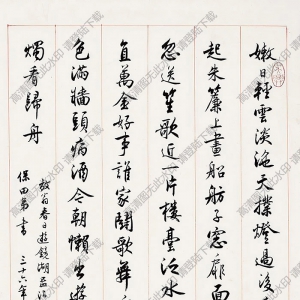 嫩日輕雲淡沲天撲燈過後
起朱簾上畫船舫子窓扉面
忽送笙歌近一片樓臺泛水
直萬金好事誰家鬪歌舞
色滿牆頭病酒今朝懶出遊
燭看歸舟
放翁春日遊鏡湖
三十六年